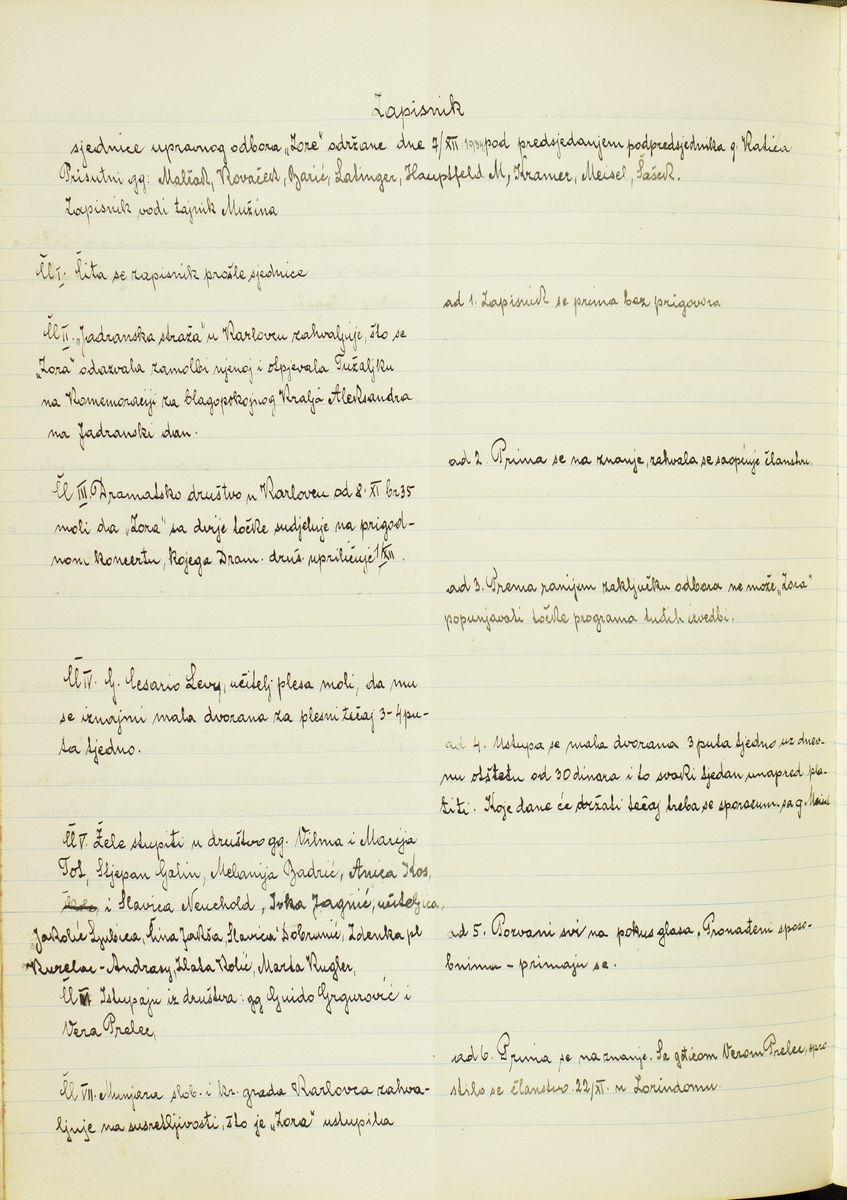 Zapisnik
sjednice upravnog odbora „Zore“ održane dne 7/XII 1934 pod predsjedanjem podpredsjednika g. Katića
Prisutni gg: Malčak, Kovaček, Barić, Latinger, Hauptfeld M, Kramer, Meisel, Šašek.
Zapisnik vodi tajnik Mužina
Čl I. Čita se zapisnik prošle sjednice
ad 1. Zapisnik se prima bez prigovora
Čl II. „Jadranska straža“ u Karlovcu zahvaljuje, što se
„Zora“ odazvala zamolbi njenoj i otpjevala Tužaljku
na Komemoraciji za blagopokojnog Kralja Aleksandra
na Jadranski dan.
ad 2. Prima se na znanje, zahvala se saopćuje članstvu.
Čl III. Dramatsko društvo u Karlovcu od 8. XI br 35
moli da „Zora“ sa dvije točke sudjeluje na prigod-
nom koncertu, kojega Dram. druš. upriličuje 1/XII.
ad 3. Prema ranijem zaključku odbora ne može „Zora“
popunjavati točke programa tuđih izvedbi.
Čl IV. G. Cesario Levy, učitelj plesa moli, da mu
se iznajmi mala dvorana za plesni tečaj 3-4 pu-
ta tjedno.
ad 4. Ustupa se mala dvorana 3 puta tjedno uz dnev-
nu otštetu od 30 dinara i to svaki tjedan unapred pla-
titi. Koje dane će držati tečaj treba se sporazum. sa g Meisel
Čl V. Žele stupiti u društvo gg. Vilma i Marija
Tot, Stjepan Galin, Melanija Badrić, Anica Kos,
i Slavica Neuchold, Ivka Jagnić, učiteljica,
Jakolić Ljubica, Tina Jakša, Slavica Dobrinić, Zdenka pl
Kurelac-Andrasy, Zlata Kolić, Marta Kugler,
ad 5. Pozvani svi na pokus glasa. Pronađeni sposo-
bnima - primaju se.
Čl VI Istupaju iz društva: gg Guido Grgurović i
Vera Prelec,
ad 6. Prima se na znanje. Sa gđicom Verom Prelec, opro
stilo se članstvo 22/XI. u Zorindomu.
Čl VII. Munjara slob. i kr. grada Karlovca zahva-
ljuje na susretljivosti, što je „Zora“ ustupila